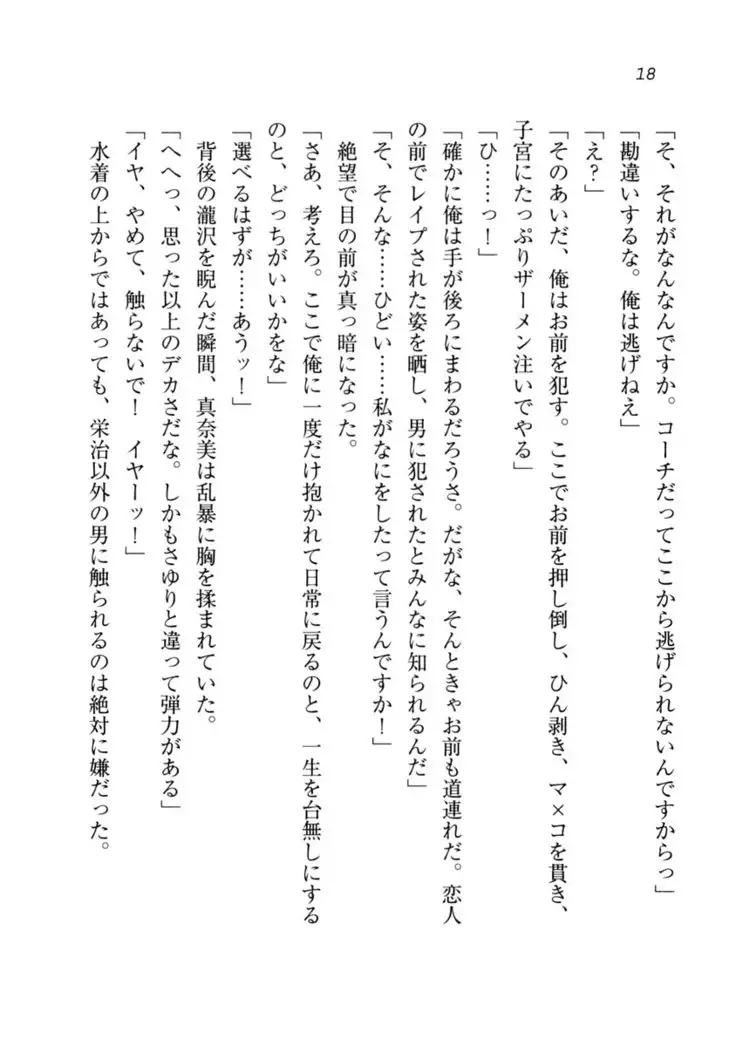 18
「そ、それがなんなんですか。コーチだってここから逃げられないんですからっ」
「勘違いするな。俺は逃げねえ」
「え？」
「そのあいだ、俺はお前を犯す。ここでお前を押し倒し、ひん剥き、マ×コを貫き、
子宮にたっぷりザーメン注いでやる」
「ひ……っ！」
「確かに俺は手が後ろにまわるだろうさ。だがな、そんときゃお前も道連れだ。恋人
の前でレイプされた姿を晒し、男に犯されたとみんなに知られるんだ」
「そ、そんな……ひどい……私がなにをしたって言うんですか！」
絶望で目の前が真っ暗になった。
「さあ、考えろ。ここで俺に一度だけ抱かれて日常に戻るのと、一生を台無しにする
のと、どっちがいいかをな」
「選べるはずが……あうッ！」
背後の瀧沢を睨んだ瞬間、真奈美は乱暴に胸を揉まれていた。
「へへっ、思った以上のデカさだな。しかもさゆりと違って弾力がある」
「イヤ、やめて、触らないで！　イヤーッ！」
水着の上からではあっても、栄治以外の男に触られるのは絶対に嫌だった。